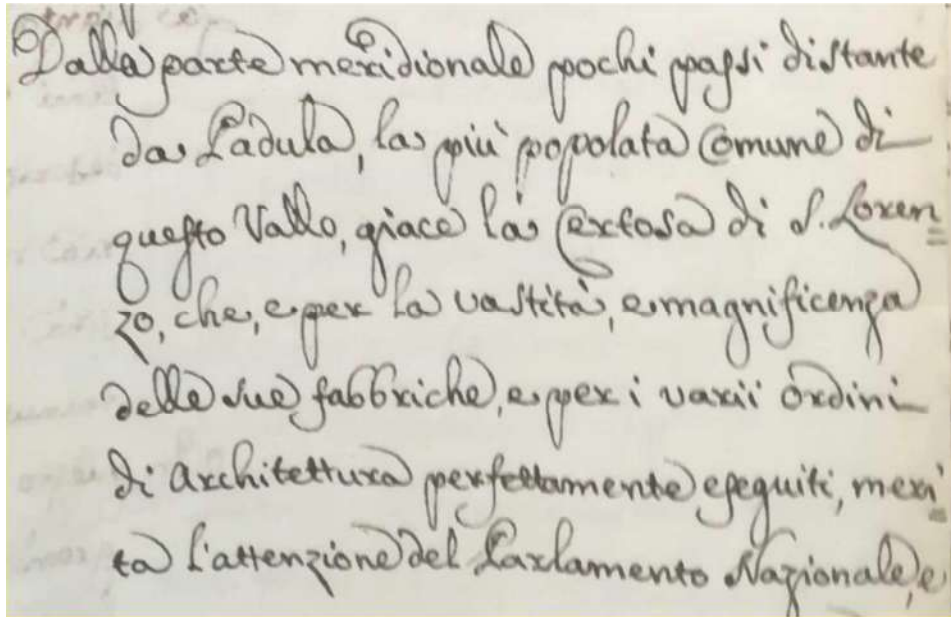 Dalla parte meridionale pochi passi distante
da Padula, la più popolata Comune di
questo Vallo, giace la Certosa di S. Loren=
zo, che, e per la vastità, e magnificenza
delle sue fabbriche, e per i varii ordini
di Architettura perfettamente eseguiti, meri=
ta l'attenzione del Parlamento Nazionale, e